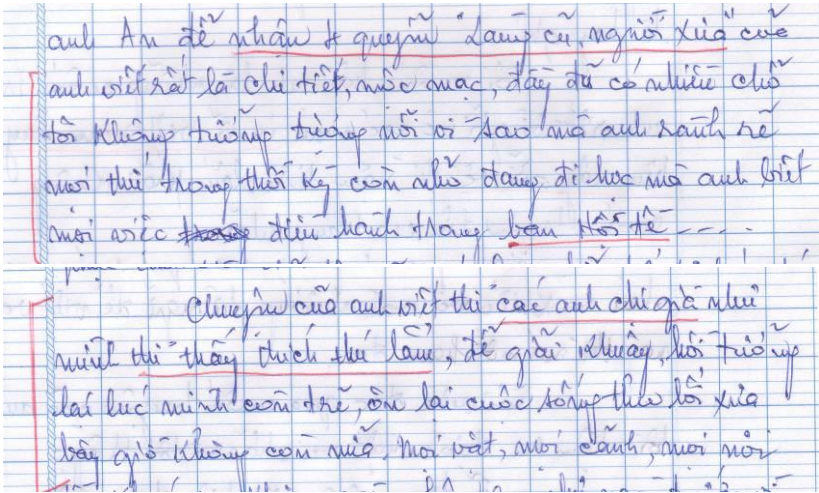 anh Ân đễ nhân 4 quyễn "Làng cũ, người xưa" cuẽ
anh viết rất là chi tiết, mộc mạc, đầy đũ có nhiều chỗ
tôi không tưỡng tượng nỗi vì sao mà anh rành rẽ
mọi thứ trong thời kỳ còn nhỏ đang đi học mà anh biết
mọi việc điều hành trong ban Hội tề ----
Chuyện cuã anh viết thì "các anh chị già như
mình thì" thấy thích thú lắm, đễ giãi khuây, hồi tưỡng
lại lúc mình còn trẽ, ôn lại cuộc sống theo lối xưa
bây giờ không còn nữa. Mọi vật, mọi cãnh, mọi nơi